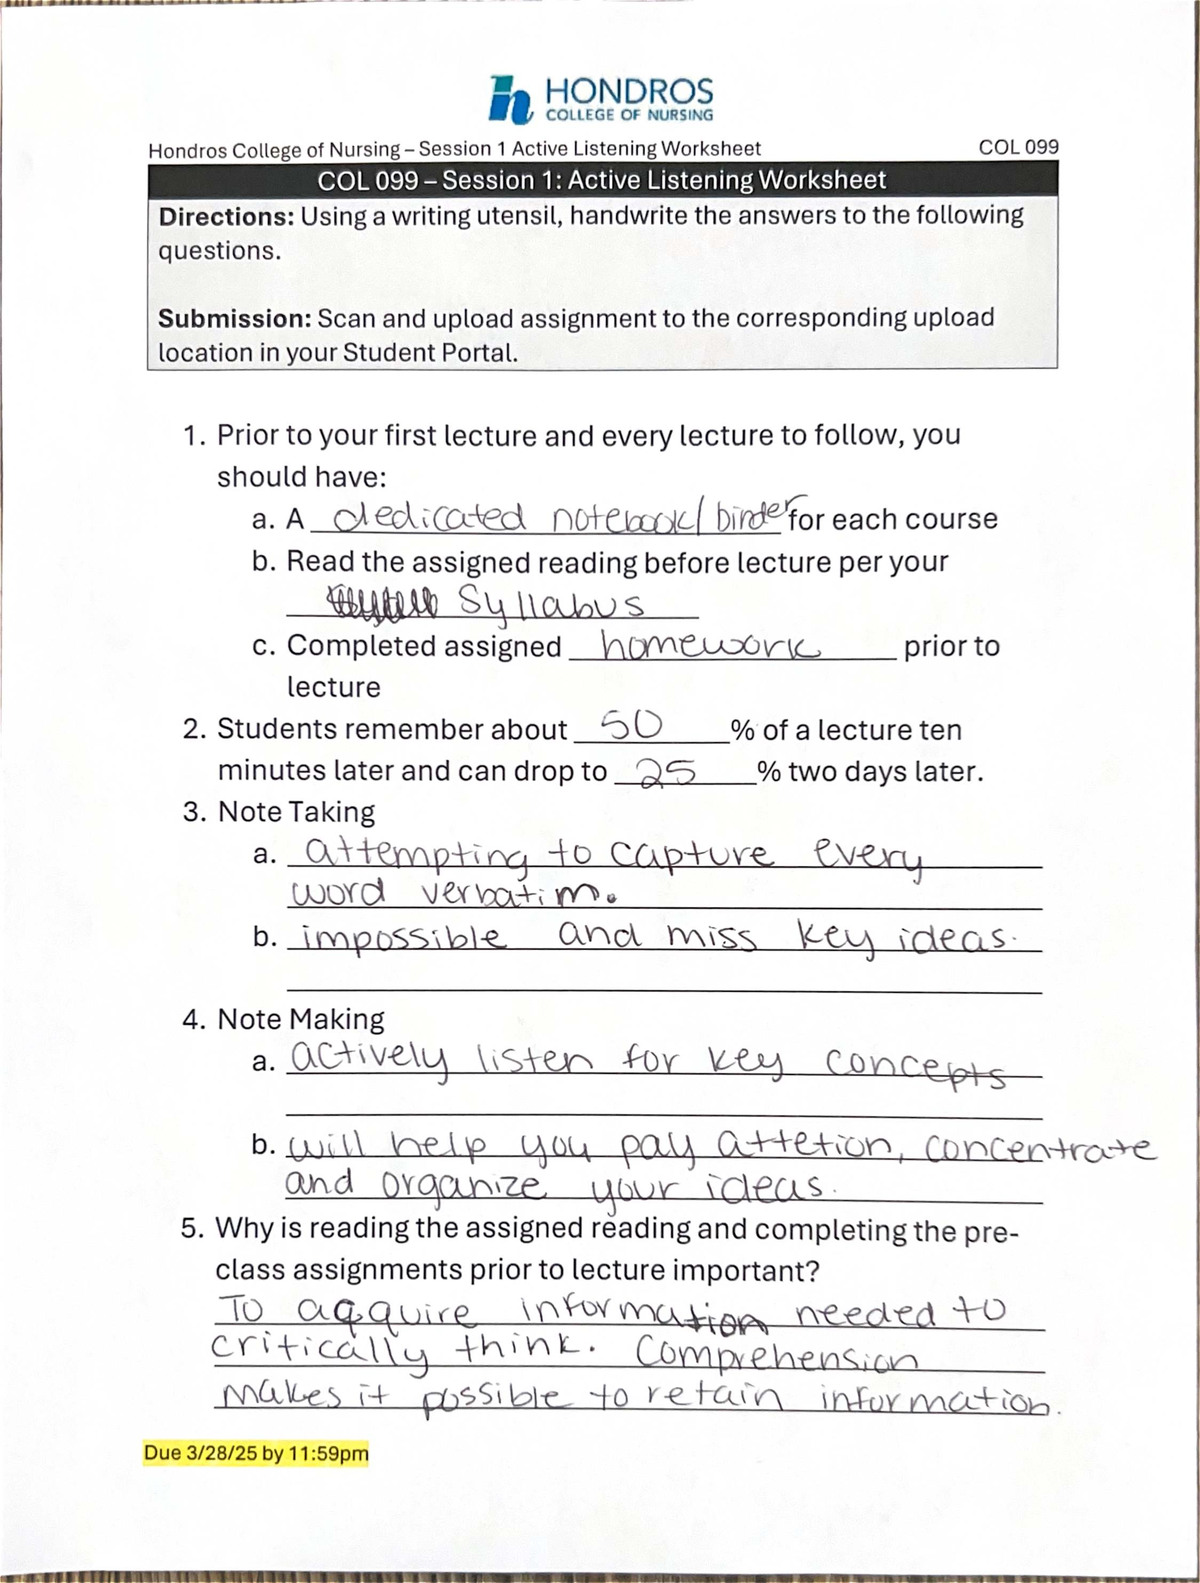 HONDROS
COLLEGE OF NURSING
Hondros College of Nursing – Session 1 Active Listening Worksheet COL 099
COL 099 – Session 1: Active Listening Worksheet
Directions: Using a writing utensil, handwrite the answers to the following
questions.
Submission: Scan and upload assignment to the corresponding upload
location in your Student Portal.
1. Prior to your first lecture and every lecture to follow, you
should have:
a. A dedicated notebook/binder for each course
b. Read the assigned reading before lecture per your
Syllabus
c. Completed assigned homework prior to
lecture
2. Students remember about 50 % of a lecture ten
minutes later and can drop to 25 % two days later.
3. Note Taking
a. attempting to capture every
word verbatim.
b. impossible and miss key ideas.
4. Note Making
a. actively listen for key concepts
b. will help you pay attetion, concentrate
and organize your ideas.
5. Why is reading the assigned reading and completing the pre-
class assignments prior to lecture important?
To aqquire information needed to
critically think. Comprehension
makes it possible to retain information.
Due 3/28/25 by 11:59pm